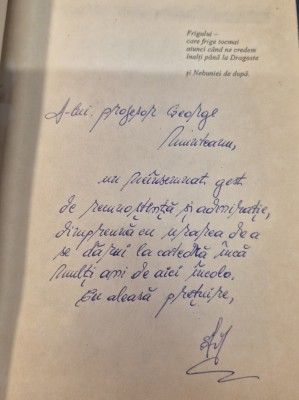 Frigului –
care frige tocmai
atunci când ne credem
înalți până la Dragoste
și Nebuniei de după.
D-lui profesor George
Munteanu,
un neînsemnat gest
de recunoștință și admirație,
dimpreună cu urarea de a
se dărui la catedră încă
mulți ani de aici încolo.
Cu aleasă prețuire,